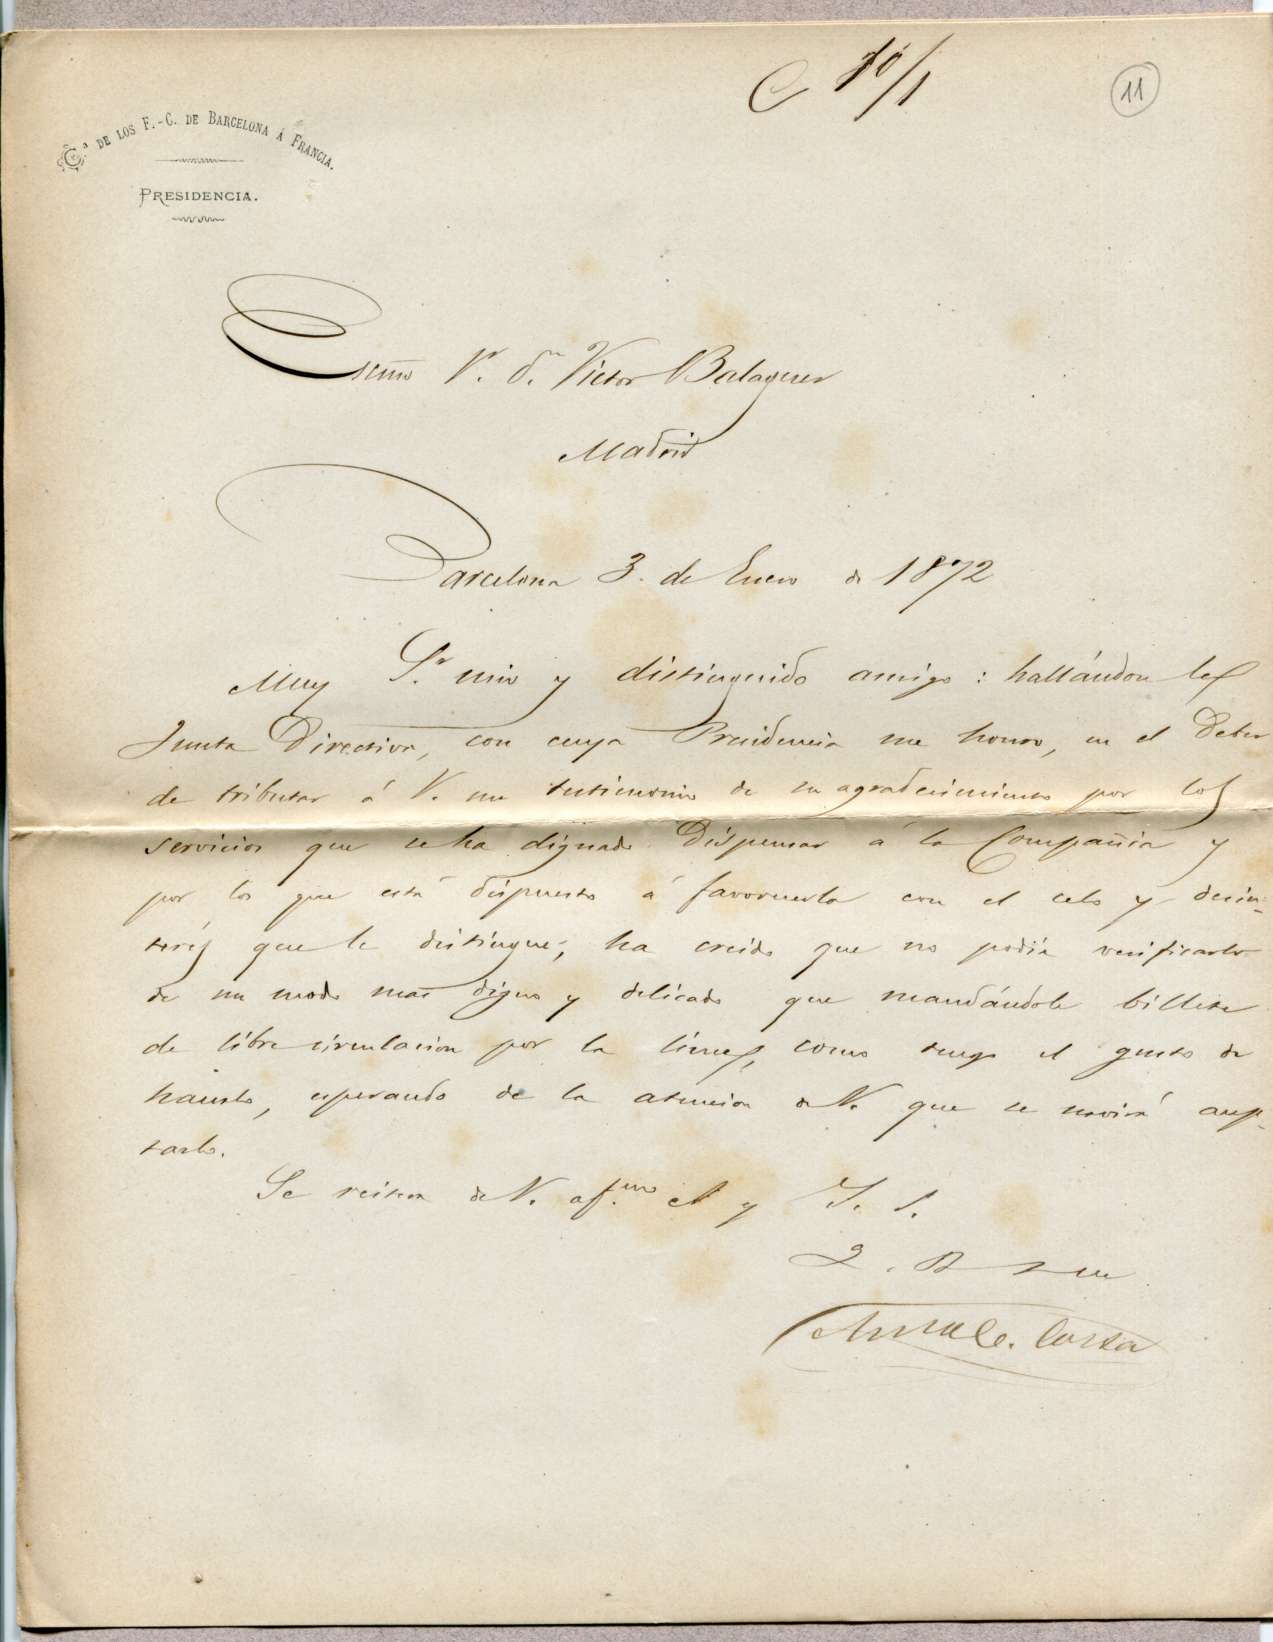 C 10/1
11
C.ª DE LOS F.-C. DE BARCELONA Á FRANCIA.
PRESIDENCIA.
Escmo Sr. Dn. Victor Balaguer
Madrid
Barcelona 3 de Enero de 1872
Muy Sr. mio y distinguido amigo: hallándose la
Junta Directiva, con cuya Presidencia me honro, en el deber
de tributar á V. un testimonio de su agradecimiento por los
servicios que se ha dignado dispensar á la Compañia y
por los que está dispuesto á favorecerla con el celo y desin-
terés que le distingue, ha creido que no podia verificarlo
de un modo mas digno y delicado que mandándole billete
de libre circulacion por la linea, como tengo el gusto de
hacerlo, esperando de la atencion de V. que se servirá acep-
tarlo.
Se reitera de V. af.mo A y S. S.
Q. B S M